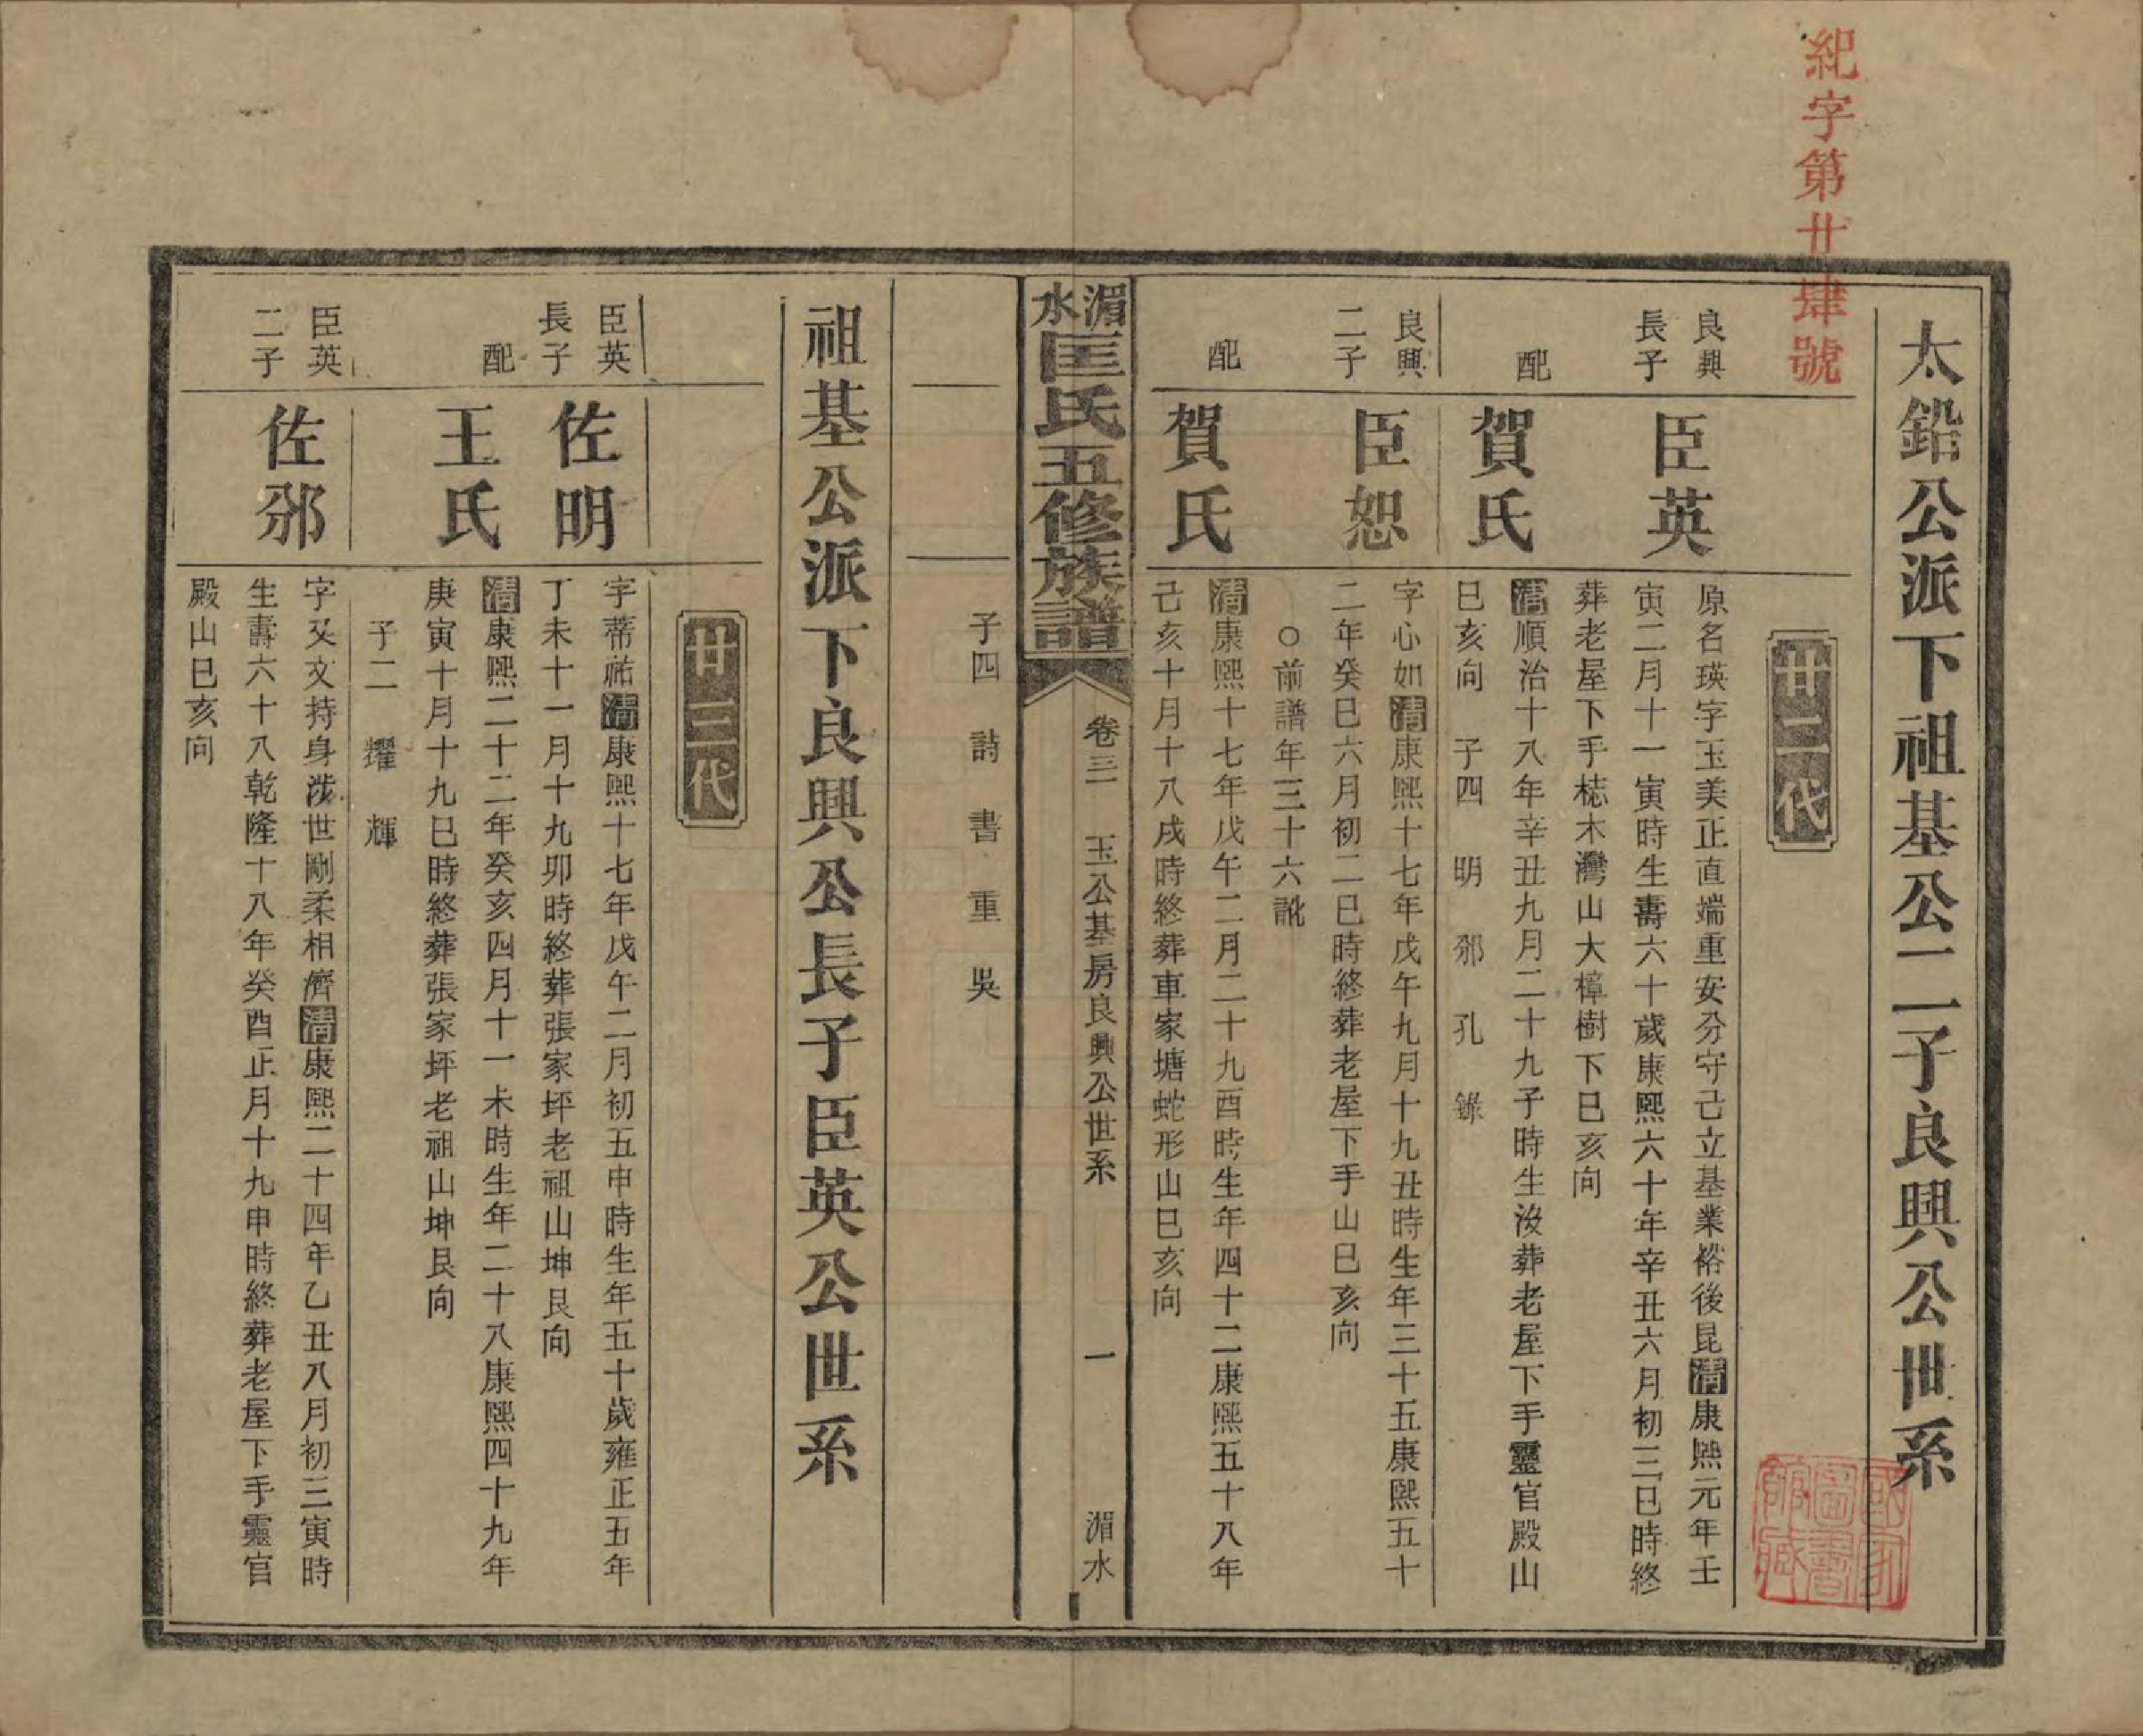 紀字第廿肆號
太鉛公派下祖基公二子良興公世系
國家圖書館藏
廿二代
良興長子
臣英
原名瑛字玉美正直端重安分守己立基業裕後昆清康熙元年壬
寅二月十一寅時生壽六十歲康熙六十年辛丑六月初三巳時終
葬老屋下手梽木灣山大樟樹下巳亥向
配
賀氏
清順治十八年辛丑九月二十九子時生沒葬老屋下手靈官殿山
巳亥向 子四 明 邠 孔 錄
良興二子
臣恕
字心如清康熙十七年戊午九月十九丑時生年三十五康熙五十
二年癸巳六月初二巳時終葬老屋下手山巳亥向
○前譜年三十六訛
配
賀氏
清康熙十七年戊午二月二十九酉時生年四十二康熙五十八年
己亥十月十八戌時終葬車家塘蛇形山巳亥向
湄水匡氏五修族譜
卷三 玉公基房良興公世系 一 湄水
子四 詩 書 重 吳
祖基公派下良興公長子臣英公世系
廿三代
臣英長子
佐明
字蒂祐清康熙十七年戊午二月初五申時生年五十歲雍正五年
丁未十一月十九卯時終葬張家坪老祖山坤艮向
配
王氏
清康熙二十二年癸亥四月十一未時生年二十八康熙四十九年
庚寅十月十九巳時終葬張家坪老祖山坤艮向
子二 耀 輝
臣英二子
佐邠
字又文持身涉世剛柔相濟清康熙二十四年乙丑八月初三寅時
生壽六十八乾隆十八年癸酉正月十九申時終葬老屋下手靈官
殿山巳亥向